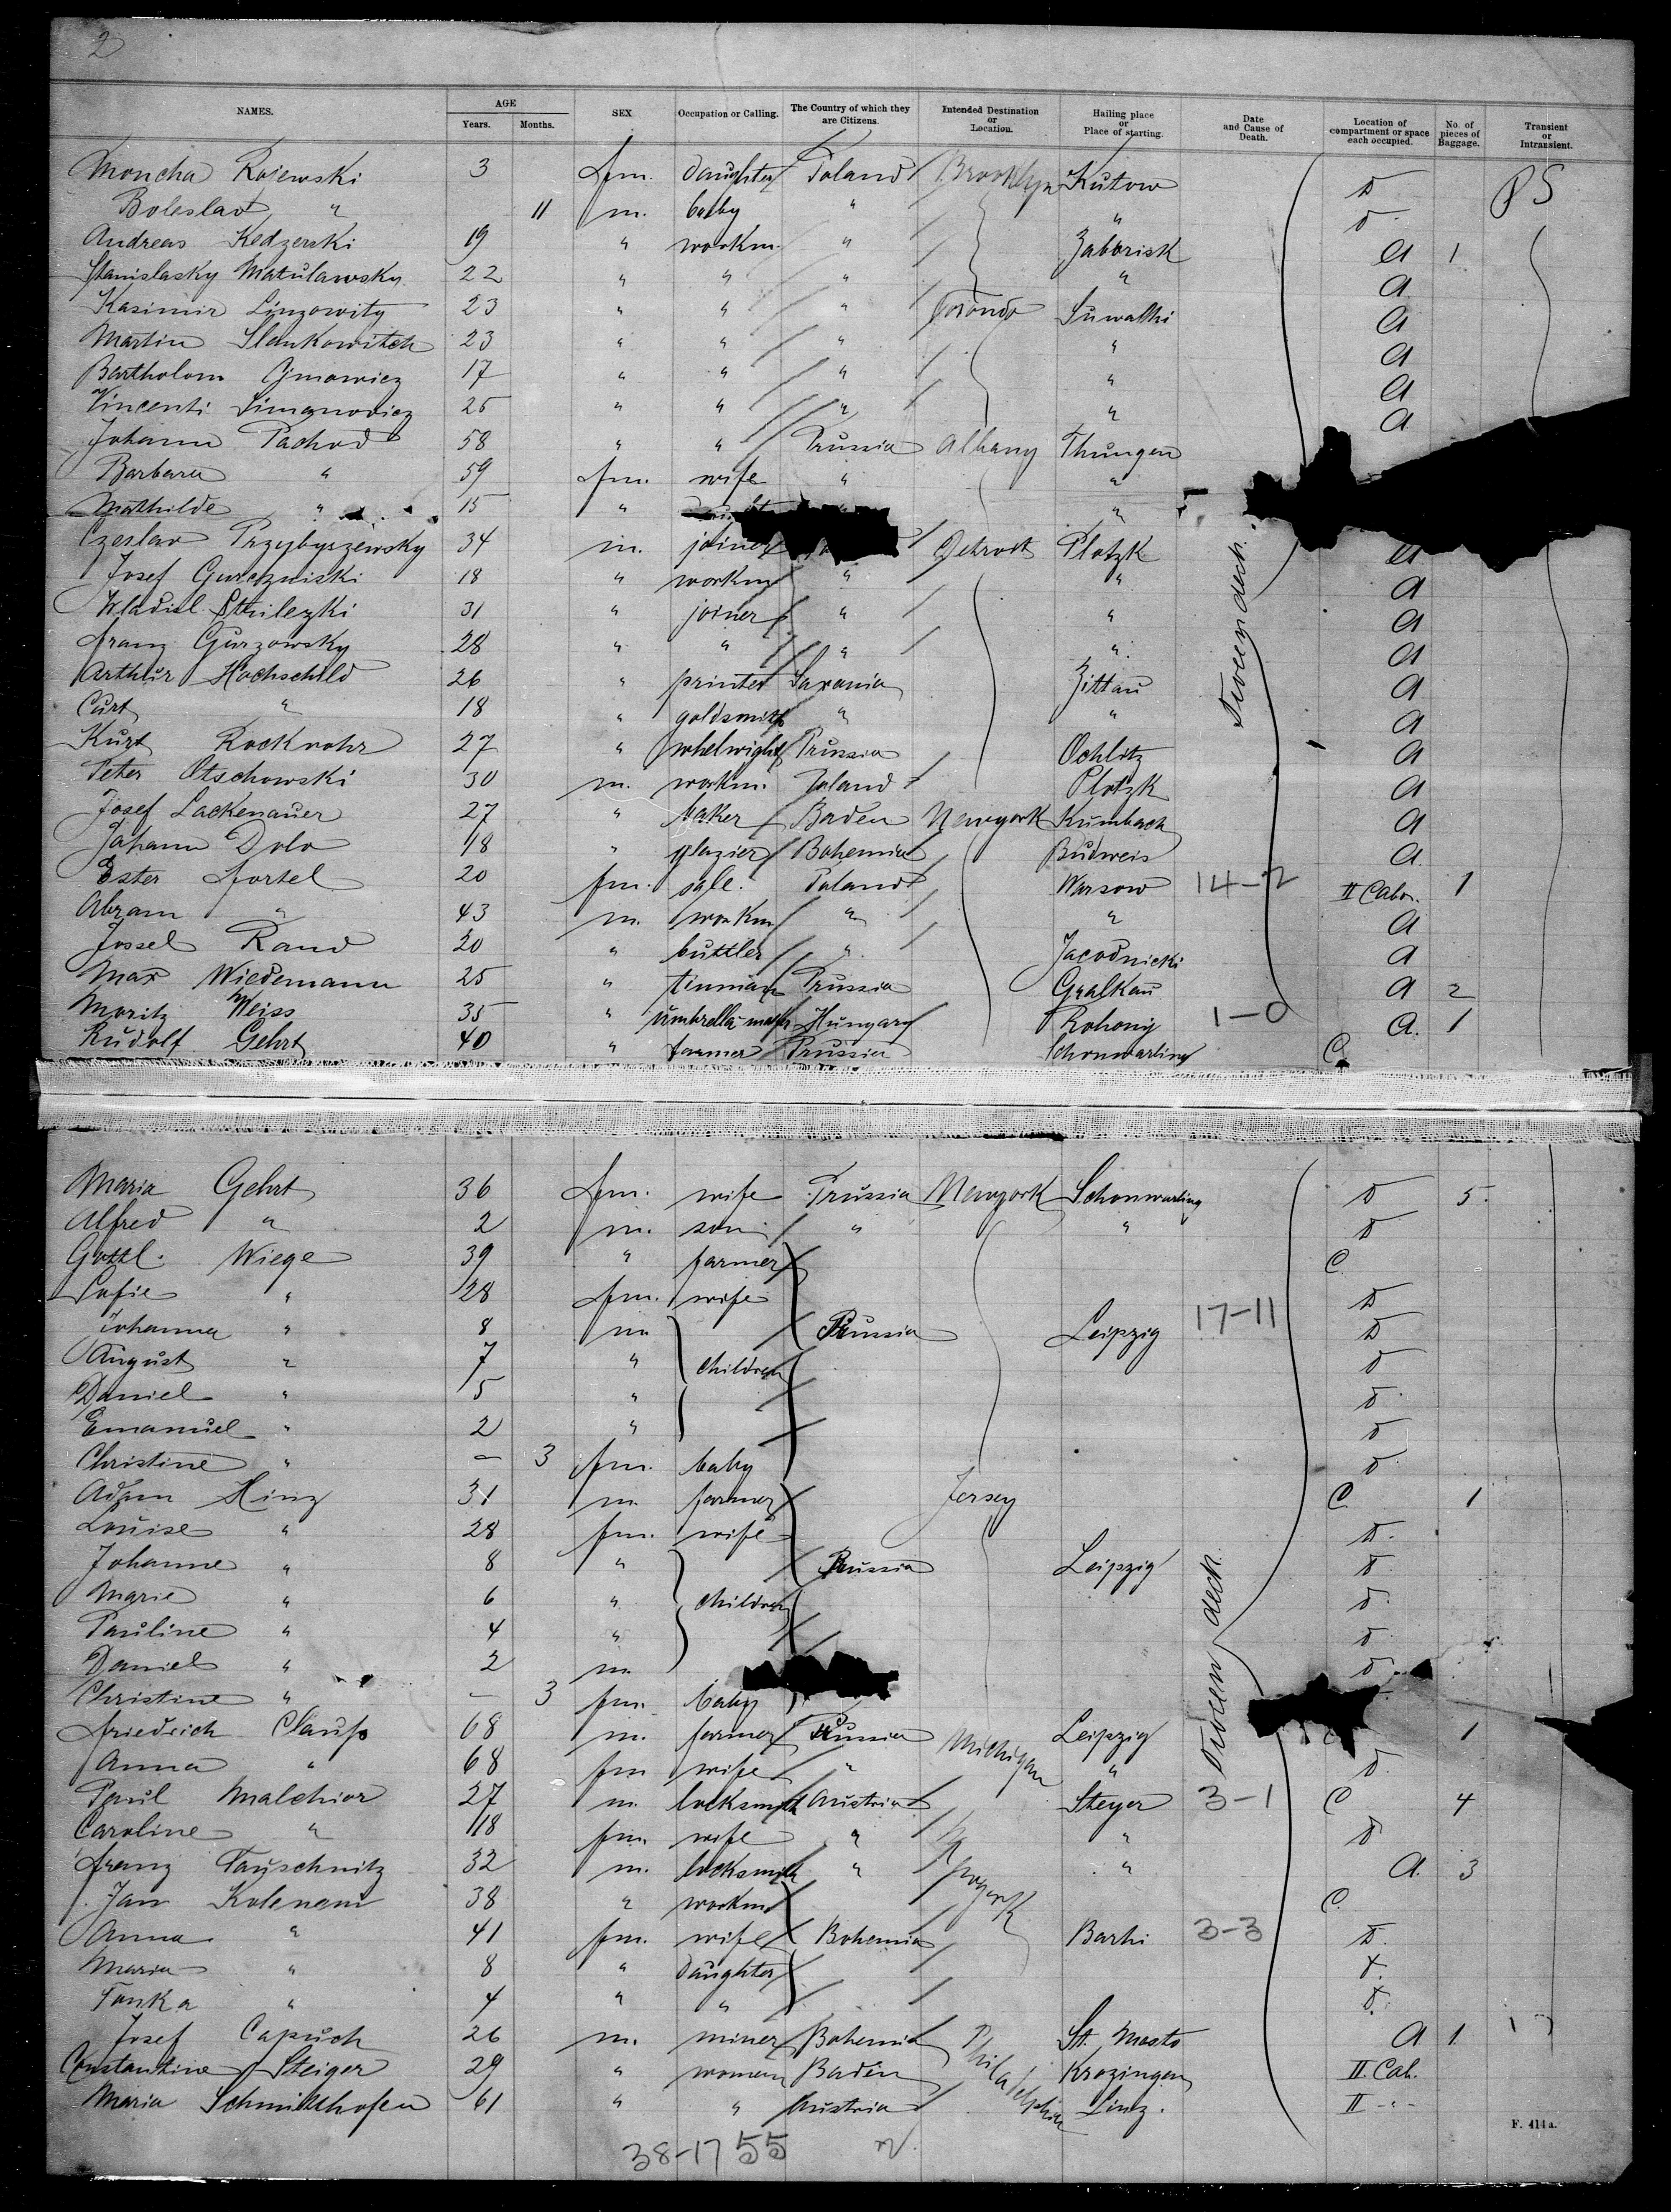 2
NAMES. AGE Years. Months. SEX Occupation or Calling. The Country of which they are Citizens. Intended Destination or Location. Hailing place or Place of starting. Date and Cause of Death. Location of compartment or space each occupied. No. of pieces of Baggage. Transient or Intransient.
Moncha Rojewski 3 fm. daughter Poland Brooklyn Kutow D PS
Boleslav " 11 m. baby " " D
Andreas Kedzerski 19 " workm. " Zaborisk A 1
Stanislasky Matulawsky 22 " " " " A
Kasimir Linzowity 23 " " " Toronto Suwalki A
Martin Slenkowitch 23 " " " " A
Bartholom 17 " " " " A
Vincenti Simanovicz 25 " " " " A
Johann Pachod 58 " " Prussia Albany Thungen
Barbara " 59 fm. wife " "
Mathilde " 15 " "
Czeslav Przybyszewsky 34 m. joiner Detroit Plotzk A
Josef Gurczwiski 18 " workm " " A
Wladisl. Strilezki 31 " joiner " " A
Franz Gurzowsky 28 " " " " A
Arthur Hochschild 26 " printer Saxonia Zittau A
Curt " 18 " goldsmith " " A
Kurt Rocknohr 27 " whelwight Prussia Ochlitz A
Peter Otschowski 30 m. workm. Poland Plotzk A
Josef Lackenauer 27 " baker Baden Newyork Kumbach A
Johann Dolo 18 " glazier Bohemia Budweis A.
Ester Fortel 20 fm. sgle. Poland Warsow 14-2 II Cabin. 1
Abram " 43 m. workm " " A
Jossel Rand 20 " buttler " Jacodnicki A
Max Wiedemann 25 " tinman Prussia Gralkau A 2
Moritz Weiss 35 " umbrella-maker Hungary Rohony 1-0 A. 1
Rudolf Gehrt 40 " farmer Prussia Schonwarling C.
Tween deck.
Maria Gehrt 36 fm. wife Prussia Newyork Schonwarling D 5.
Alfred " 2 m. son " " D
Gottl. Wiege 39 " farmer C.
Sofie " 28 fm. wife D
Johanna " 8 m Russia Leipzig 17-11 D
August " 7 " children D
Daniel " 5 " D
Emanuel " 2 " D
Christine " - 3 fm. baby D
Adam Hinz 31 m. farmer Jersey C 1
Louise " 28 fm. wife D.
Johanne " 8 " Russia Leipzig D
Marie " 6 " children D
Pauline " 4 " D
Daniel " 2 m D
Christine " - 3 fm. baby
Friedrich Clauss 68 m. farmer Russia Michigan Leipzig C 1
Anna " 68 fm wife " " D.
Paul Malchior 27 m. locksmith Austria Steyer 3-1 C 4
Caroline " 18 fm. wife " " D
Franz Tauschnitz 32 m. locksmith " Newyork " A. 3
Jan Kolenani 38 " workm C.
Anna " 41 fm. wife Bohemia Barhi 3-3 D.
Maria " 8 " daughter D.
Tonka " 4 " " D.
Josef Capuch 26 m. miner Bohemia Philadelphia St. Mosto A 1
Constantine Steiger 29 " women Baden Krozingen II. Cab.
Maria Schmidthofen 61 " " Austria Linz. II - " -
Tween deck.
38-17 55
F. 414a.